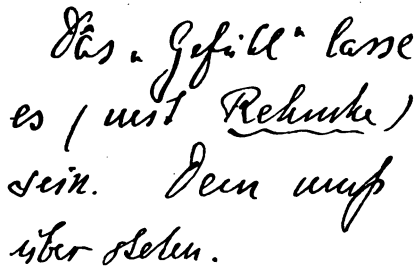 Das „Gefühl“ lasse
es (mit Rehmke)
sein. Dem muß
über stehen.